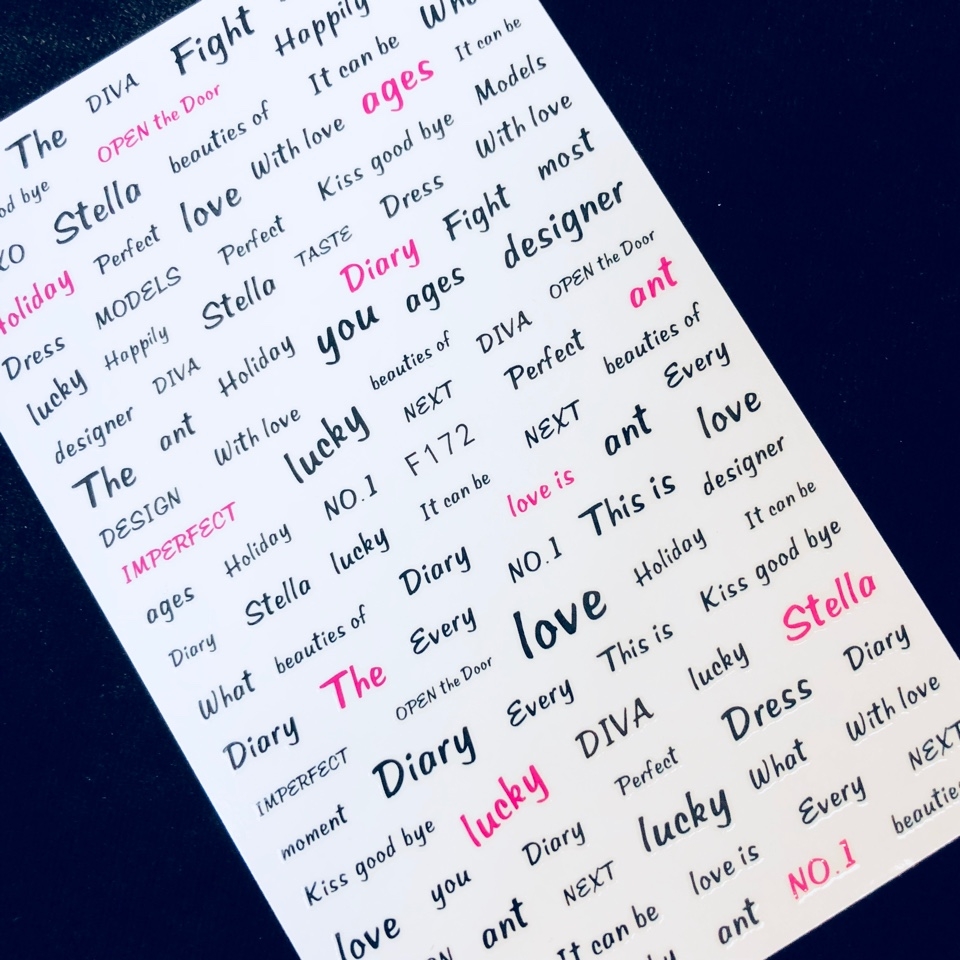 The DIVA Fight
od bye OPEN the Door Happily
XO Stella beauties of It can be Wh
Holiday Perfect love With love ages It can be
Dress MODELS Perfect Kiss good bye Models
lucky Happily Stella TASTE Dress With love
designer DIVA Diary Fight most
The ant Holiday you ages designer
DESIGN With love beauties of DIVA OPEN the Door
IMPERFECT lucky NEXT Perfect ant
ages Holiday NO.1 F172 NEXT beauties of
Diary Stella lucky It can be ant Every
What beauties of Diary love is love
Diary The Every NO.1 This is designer
IMPERFECT OPEN the Door love Holiday It can be
moment Diary Every This is Kiss good bye
Kiss good bye lucky DIVA lucky Stella
love you Diary Perfect Dress Diary
ant NEXT lucky What With love
It can be love is Every NEXT
ant NO.1 beauties